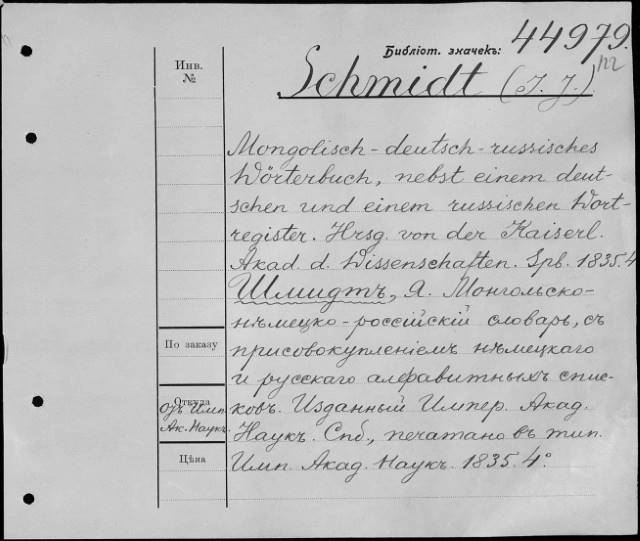 Библіот. значекъ: 44979.
Инв.
№
Schmidt (I. J.)
Mongolisch-deutsch-russisches
Wörterbuch, nebst einem deut-
schen und einem russischen Wort-
register. Hrsg. von der Kaiserl.
Akad. d. Wissenschaften. Spb. 1835. 4
Шмидтъ, Я. Монгольско-
нѣмецко-россійскій словарь, съ
По заказу
присовокупленіемъ нѣмецкаго
и русскаго алфавитныхъ спис-
Откуда
Отъ Имп.
Ак. Наукъ
ковъ. Изданный Импер. Акад.
Наукъ. Спб., печатано въ тип.
Цѣна
Имп. Акад. Наукъ. 1835. 4°.